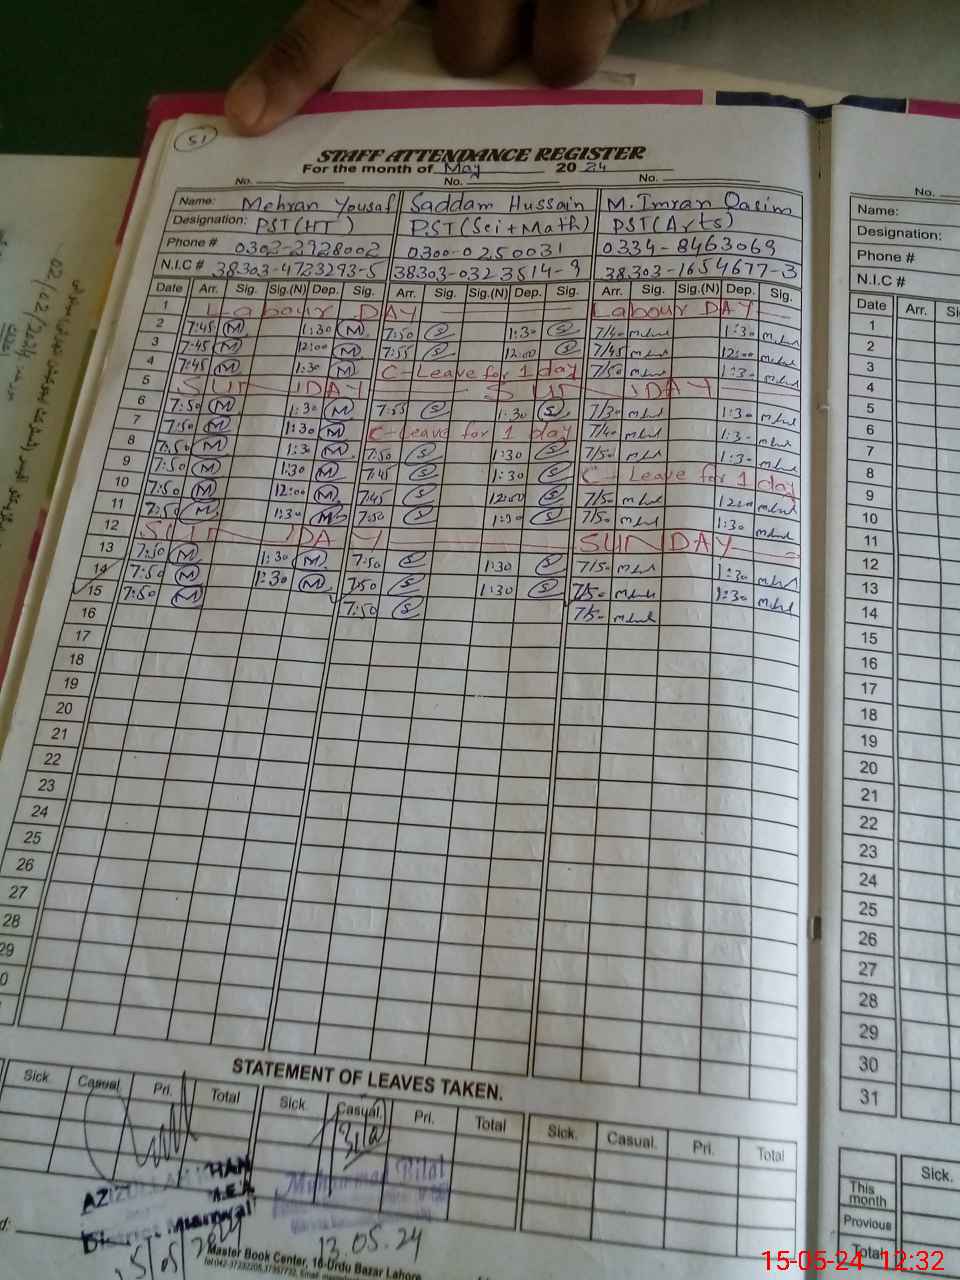 51
STAFF ATTENDANCE REGISTER
For the month of May 2024
No. No. No.
Name: Mehran Yousaf Saddam Hussain M. Imran Qasim
Designation: PST(HT) PST(Sci+Math) PST(Arts)
Phone # 0302-2928002 0300-0250031 0334-8463069
N.I.C # 38303-4723293-5 38303-0323514-9 38303-1654677-3
Date Arr. Sig. Sig.(N) Dep. Sig. Arr. Sig. Sig.(N) Dep. Sig. Arr. Sig. Sig.(N) Dep. Sig.
1 Labour DAY Labour DAY
2 7:45 M 1:30 M 7:50 S 1:30 S 7/40 1:30
3 7:45 M 12:00 M 7:55 S 12:00 S 7/45 12:00
4 7:45 M 1:30 M C-Leave for 1 day 7/50 1:30
5 SUNDAY SUNDAY
6 7:50 M 1:30 M 7:55 S 1:30 S 7/30 1:30
7 7:50 M 1:30 M C-Leave for 1 day 7/40 1:30
8 7:50 M 1:30 M 7:50 S 1:30 S 7/50 1:30
9 7:50 M 1:30 M 7:45 S 1:30 S C-Leave for 1 day
10 7:50 M 12:00 M 7:45 S 12:00 S 7/50 1200
11 7:50 M 1:30 M 7:50 S 1:30 S 7/50 1:30
12 SUNDAY SUNDAY
13 7:50 M 1:30 M 7:50 S 1:30 S 7/50 1:30
14 7:50 M 1:30 M 7:50 S 1:30 S 7/50 1:30
15 7:50 M 7:50 S 7/50
16
17
18
19
20
21
22
23
24
25
26
27
28
29
STATEMENT OF LEAVES TAKEN.
Sick. Casual. Pri. Total Sick. Casual. Pri. Total Sick. Casual. Pri. Total
AZIZULLAH KHAN
A.E.A
District Mianwali
Muhammad Bilal
13.05.24
Master Book Center, 16-Urdu Bazar Lahore
No.
Name:
Designation:
Phone #
N.I.C #
Date Arr.
1
2
3
4
5
6
7
8
9
10
11
12
13
14
15
16
17
18
19
20
21
22
23
24
25
26
27
28
29
30
31
Sick.
This month
Previous
Total
02/02/2024
15-05-24 12:32